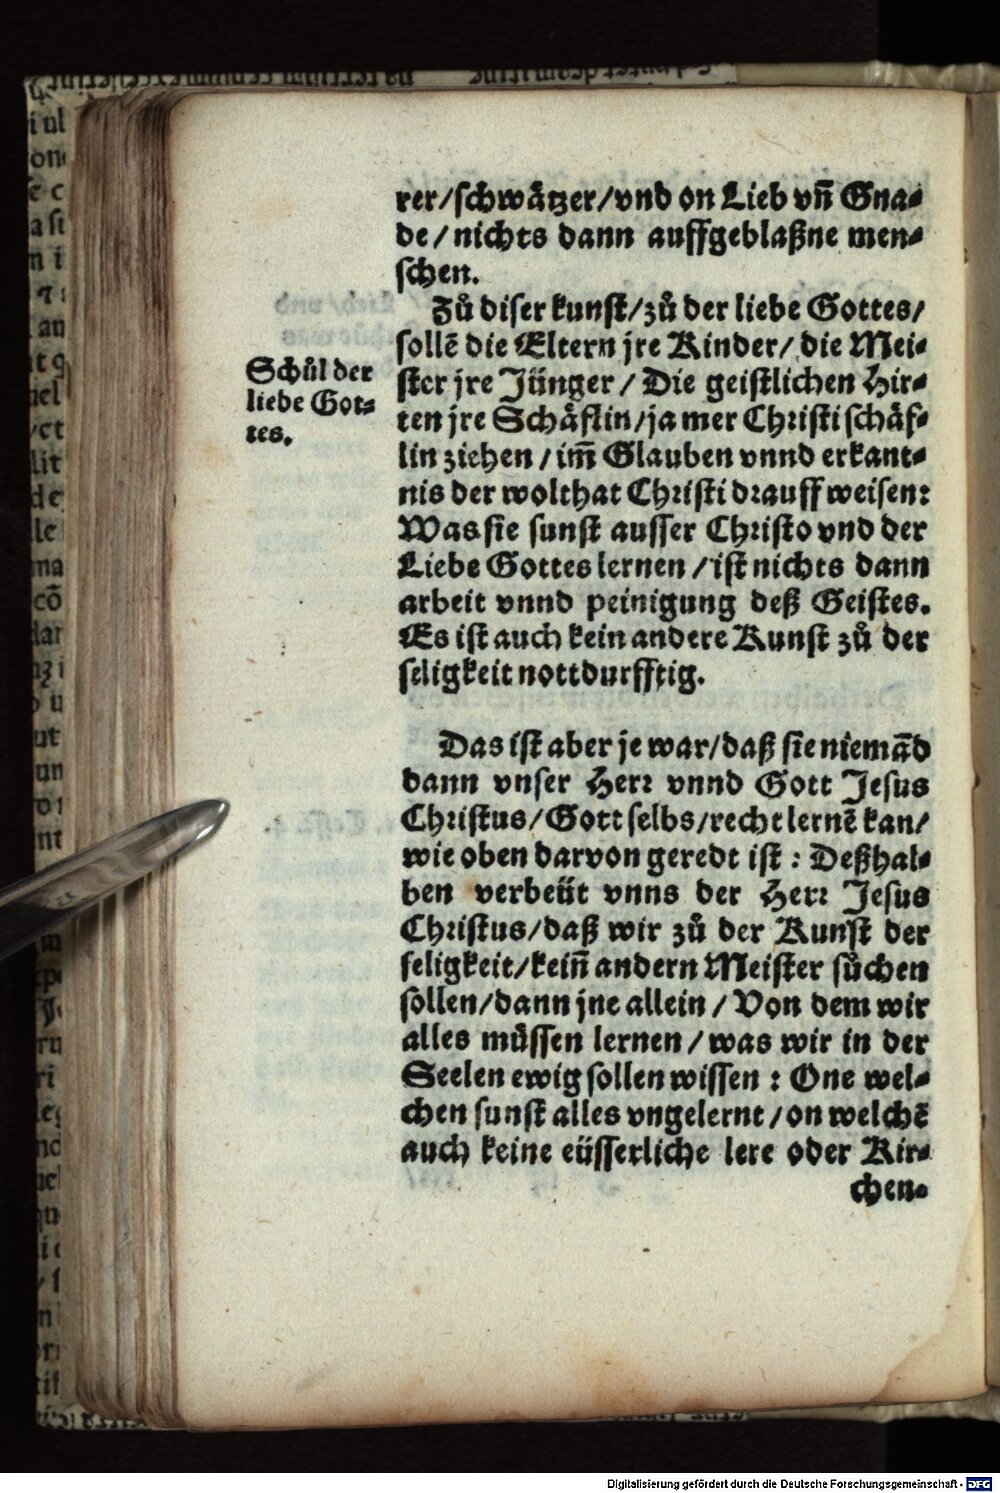 rer/schwåtzer/vnd on Lieb vñ Gna-
de/nichts dann auffgeblaßne men-
schen.
Zů diser kunst/zů der liebe Gottes/
sollē die Eltern jre Kinder/die Mei-
ster jre Jünger/Die geistlichen Hir-
ten jre Schåflin/ja mer Christi schåf-
lin ziehen/im̃ Glauben vnnd erkant-
nis der wolthat Christi drauff weisen:
Was sie sunst ausser Christo vnd der
Liebe Gottes lernen/ist nichts dann
arbeit vnnd peinigung deß Geistes.
Es ist auch kein andere Kunst zů der
seligkeit nottdurfftig.
Schůl der
liebe Got-
tes.
Das ist aber je war/daß sie niemãd
dann vnser Herr vnnd Gott Jesus
Christus/Gott selbs/recht lernē kan/
wie oben darvon geredt ist: Deßhal-
ben verbeüt vnns der Herr Jesus
Christus/daß wir zů der Kunst der
seligkeit/keiñ andern Meister sůchen
sollen/dann jne allein/Von dem wir
alles müssen lernen/was wir in der
Seelen ewig sollen wissen: One wel-
chen sunst alles vngelernt/on welchē
auch keine eüsserliche lere oder Kir-
chen-
Digitalisierung gefördert durch die Deutsche Forschungsgemeinschaft - DFG